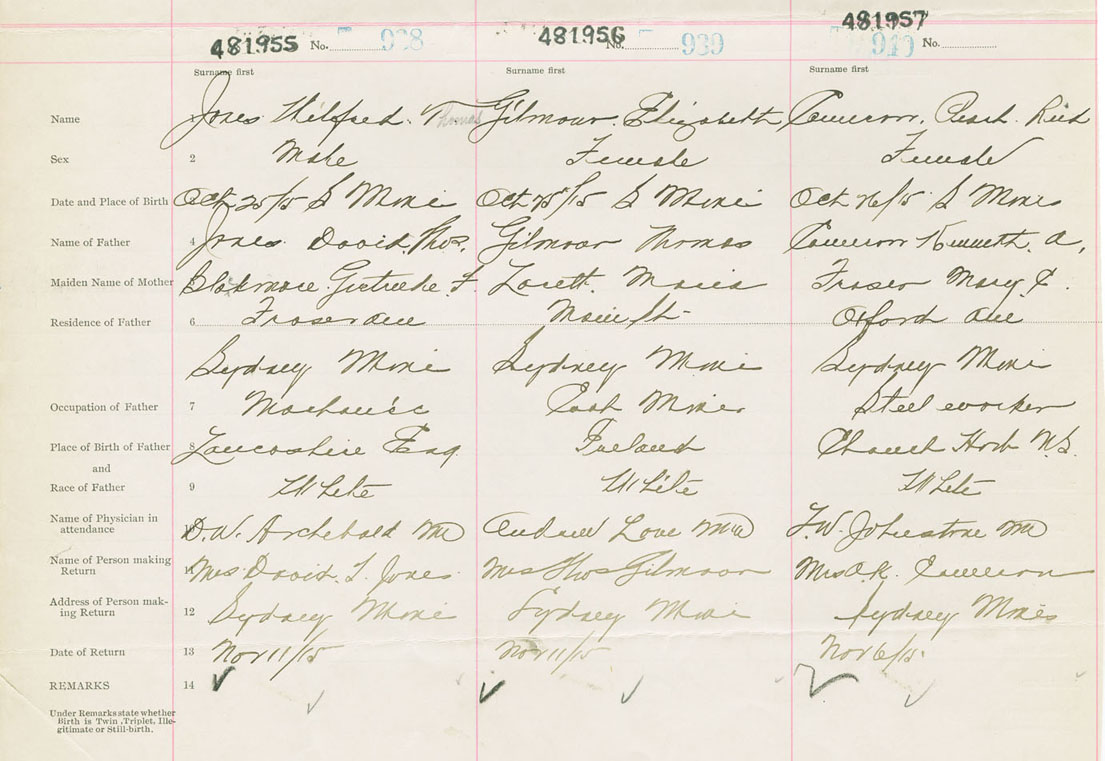 481955 No. 938 481956 No. 939 481957 940 No.
Surname first Surname first Surname first
Name 1 Jones Wilfred. T homas Gilmour, Elizabeth Cameron,
Sex 2 Male Female Female
Date and Place of Birth Oct 25/15 S Mines Oct 25/15 S Mines Oct 26/15 S Mines
Name of Father 4 Jones David. Thos. Gilmour Thomas Cameron Kenneth A,
Maiden Name of Mother Blakmore Gertrude F. Maria Fraser Mary
Residence of Father 6 Fraser ave Main St Oxford Ave
Sydney Mines Sydney Mines Sydney Mines
Occupation of Father 7 Machanic Coal Miner Steel worker
Place of Birth of Father 8 Lancashire Eng Ireland Harb N.S.
and
Race of Father 9 White White White
Name of Physician in
attendance 10 D.W. Archibald MD Andrew Love MD F.W. Johnstone MD
Name of Person making
Return 11 Mrs David. T. Jones Mrs Thos Gilmour Mrs A.K. Cameron
Address of Person mak-
ing Return 12 Sydney Mines Sydney Mines Sydney Mines
Date of Return 13 Nov 11/15 Nov 11/15 Nov 6/15
REMARKS 14
Under Remarks state whether
Birth is Twin, Triplet, Ille-
gitimate or Still-birth.